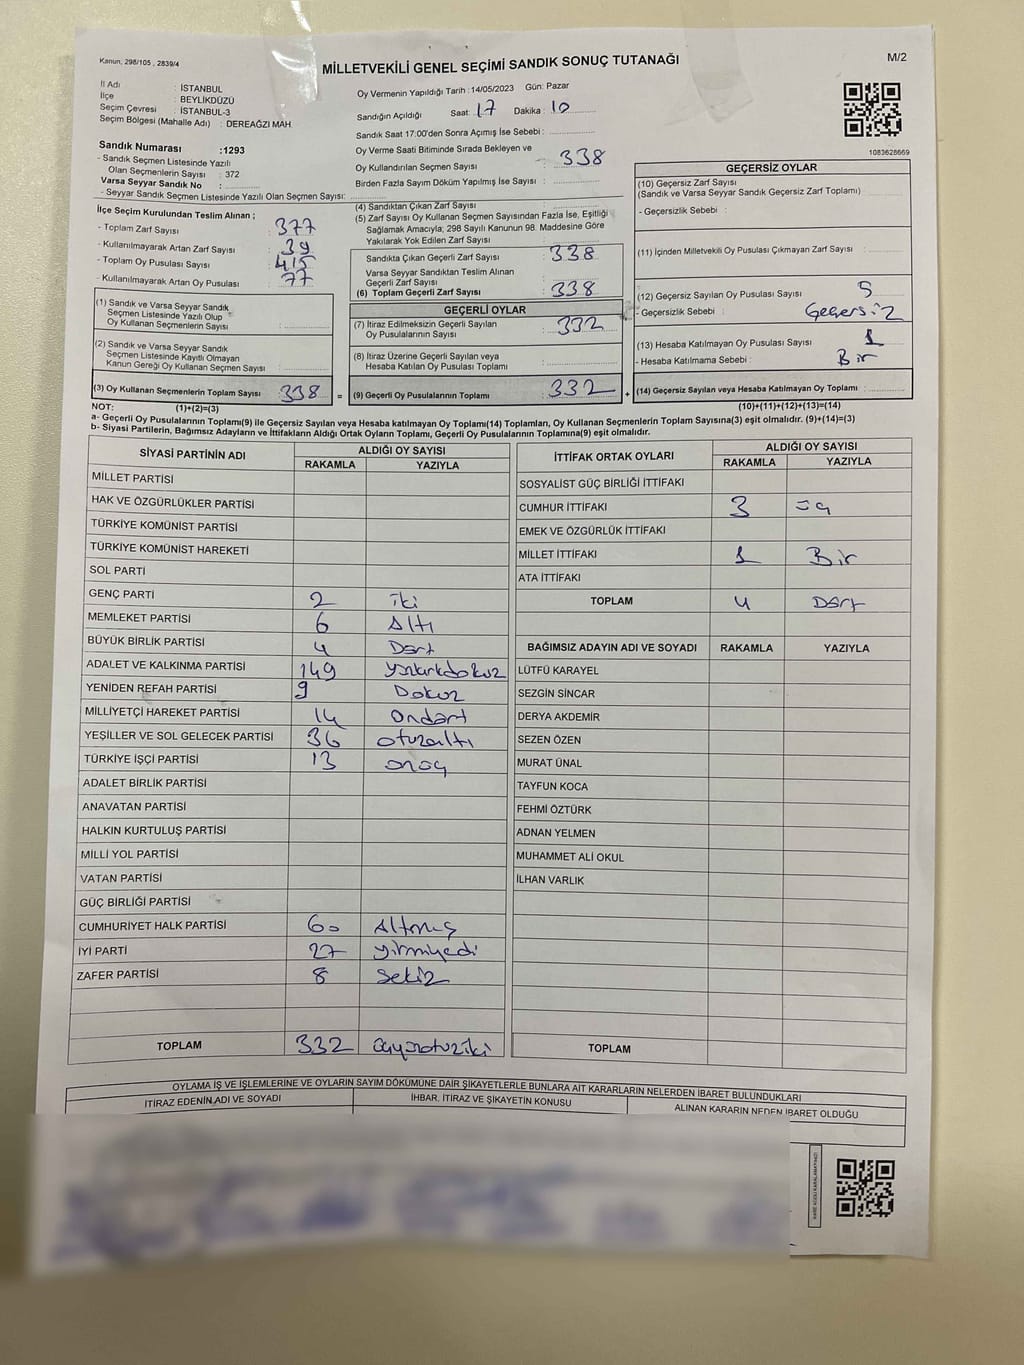 Kanun, 298/105 , 2839/4
MİLLETVEKİLİ GENEL SEÇİMİ SANDIK SONUÇ TUTANAĞI
M/2
İl Adı : İSTANBUL
İlçe : BEYLİKDÜZÜ
Seçim Çevresi : İSTANBUL-3
Seçim Bölgesi (Mahalle Adı) : DEREAĞZI MAH.
Sandık Numarası :1293
- Sandık Seçmen Listesinde Yazılı
Olan Seçmenlerin Sayısı : 372
Varsa Seyyar Sandık No :
- Seyyar Sandık Seçmen Listesinde Yazılı Olan Seçmen Sayısı:
Oy Vermenin Yapıldığı Tarih : 14/05/2023 Gün: Pazar
Sandığın Açıldığı Saat: 17 Dakika : 10
Sandık Saat 17:00'den Sonra Açımış İse Sebebi :
Oy Verme Saati Bitiminde Sırada Bekleyen ve
Oy Kullandırılan Seçmen Sayısı : 338
Birden Fazla Sayım Döküm Yapılmış İse Sayısı :
1083628669
İlçe Seçim Kurulundan Teslim Alınan ;
- Toplam Zarf Sayısı : 377
- Kullanılmayarak Artan Zarf Sayısı : 39
- Toplam Oy Pusulası Sayısı : 415
- Kullanılmayarak Artan Oy Pusulası : 77
(1) Sandık ve Varsa Seyyar Sandık
Seçmen Listesinde Yazılı Olup
Oy Kullanan Seçmenlerin Sayısı :
(2) Sandık ve Varsa Seyyar Sandık
Seçmen Listesinde Kayıtlı Olmayan
Kanun Gereği Oy Kullanan Seçmen Sayısı :
(3) Oy Kullanan Seçmenlerin Toplam Sayısı : 338 =
(4) Sandıktan Çıkan Zarf Sayısı :
(5) Zarf Sayısı Oy Kullanan Seçmen Sayısından Fazla İse, Eşitliği
Sağlamak Amacıyla; 298 Sayılı Kanunun 98. Maddesine Göre
Yakılarak Yok Edilen Zarf Sayısı :
Sandıkta Çıkan Geçerli Zarf Sayısı : 338
Varsa Seyyar Sandıktan Teslim Alınan
Geçerli Zarf Sayısı :
(6) Toplam Geçerli Zarf Sayısı : 338
GEÇERLİ OYLAR
(7) İtiraz Edilmeksizin Geçerli Sayılan
Oy Pusulalarının Sayısı : 332
(8) İtiraz Üzerine Geçerli Sayılan veya
Hesaba Katılan Oy Pusulası Toplamı :
(9) Geçerli Oy Pusulalarının Toplamı : 332 +
GEÇERSİZ OYLAR
(10) Geçersiz Zarf Sayısı
(Sandık ve Varsa Seyyar Sandık Geçersiz Zarf Toplamı) :
- Geçersizlik Sebebi :
(11) İçinden Milletvekili Oy Pusulası Çıkmayan Zarf Sayısı :
(12) Geçersiz Sayılan Oy Pusulası Sayısı : 5
- Geçersizlik Sebebi : Geçersiz
(13) Hesaba Katılmayan Oy Pusulası Sayısı : 1
- Hesaba Katılmama Sebebi : Bir
(14) Geçersiz Sayılan veya Hesaba Katılmayan Oy Toplamı :
NOT: (1)+(2)=(3)
(10)+(11)+(12)+(13)=(14)
a- Geçerli Oy Pusulalarının Toplamı(9) ile Geçersiz Sayılan veya Hesaba katılmayan Oy Toplamı(14) Toplamları, Oy Kullanan Seçmenlerin Toplam Sayısına(3) eşit olmalıdır. (9)+(14)=(3)
b- Siyasi Partilerin, Bağımsız Adayların ve İttifakların Aldığı Ortak Oyların Toplamı, Geçerli Oy Pusulalarının Toplamına(9) eşit olmalıdır.
SİYASİ PARTİNİN ADI ALDIĞI OY SAYISI
RAKAMLA YAZIYLA
MİLLET PARTİSİ
HAK VE ÖZGÜRLÜKLER PARTİSİ
TÜRKİYE KOMÜNİST PARTİSİ
TÜRKİYE KOMÜNİST HAREKETİ
SOL PARTİ
GENÇ PARTİ 2 iki
MEMLEKET PARTİSİ 6 Altı
BÜYÜK BİRLİK PARTİSİ 4 Dört
ADALET VE KALKINMA PARTİSİ 149 yüzkırkdokuz
YENİDEN REFAH PARTİSİ 9 Dokuz
MİLLİYETÇİ HAREKET PARTİSİ 14 Ondört
YEŞİLLER VE SOL GELECEK PARTİSİ 36 otuzaltı
TÜRKİYE İŞÇİ PARTİSİ 13 onüç
ADALET BİRLİK PARTİSİ
ANAVATAN PARTİSİ
HALKIN KURTULUŞ PARTİSİ
MİLLİ YOL PARTİSİ
VATAN PARTİSİ
GÜÇ BİRLİĞİ PARTİSİ
CUMHURİYET HALK PARTİSİ 60 Altmış
İYİ PARTİ 27 yirmiyedi
ZAFER PARTİSİ 8 Sekiz
TOPLAM 332 üçyüzotuziki
İTTİFAK ORTAK OYLARI ALDIĞI OY SAYISI
RAKAMLA YAZIYLA
SOSYALİST GÜÇ BİRLİĞİ İTTİFAKI
CUMHUR İTTİFAKI 3 üç
EMEK VE ÖZGÜRLÜK İTTİFAKI
MİLLET İTTİFAKI 1 Bir
ATA İTTİFAKI
TOPLAM 4 Dört
BAĞIMSIZ ADAYIN ADI VE SOYADI RAKAMLA YAZIYLA
LÜTFÜ KARAYEL
SEZGİN SİNCAR
DERYA AKDEMİR
SEZEN ÖZEN
MURAT ÜNAL
TAYFUN KOCA
FEHMİ ÖZTÜRK
ADNAN YELMEN
MUHAMMET ALİ OKUL
İLHAN VARLIK
TOPLAM
OYLAMA İŞ VE İŞLEMLERİNE VE OYLARIN SAYIM DÖKÜMÜNE DAİR ŞİKAYETLERLE BUNLARA AİT KARARLARIN NELERDEN İBARET BULUNDUKLARI
İTİRAZ EDENİN,ADI VE SOYADI İHBAR, İTİRAZ VE ŞİKAYETİN KONUSU ALINAN KARARIN NEDEN İBARET OLDUĞU